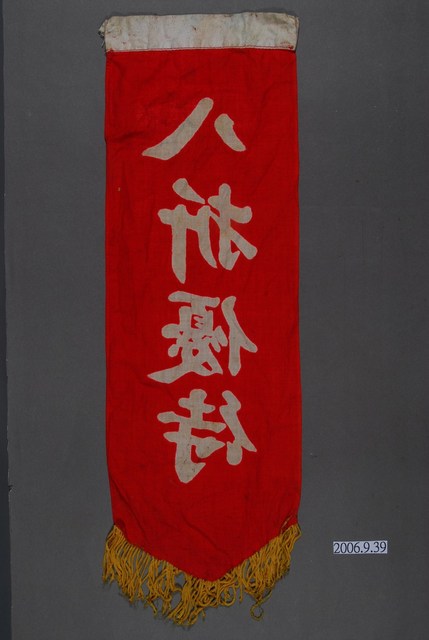 八折優待
2006.9.39